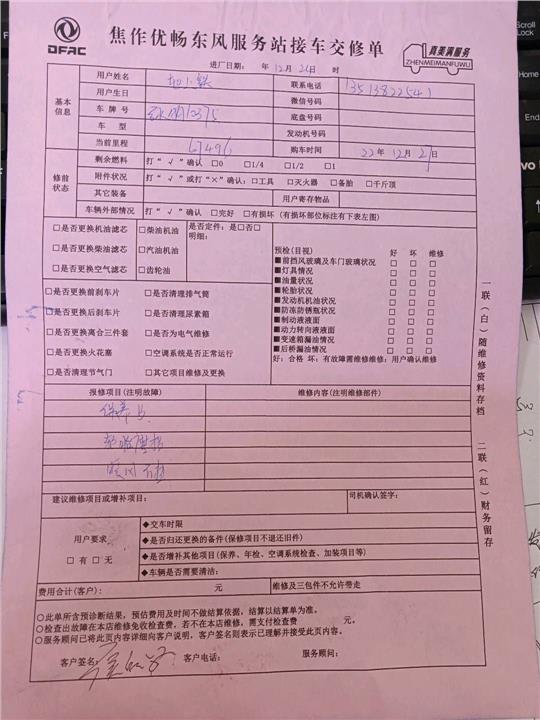 DFAC
焦作优畅东风服务站接车交修单
真美满服务
ZHENMEIMANFUWU
进厂日期： 年12月26日 时
基本信息
用户姓名
联系电话 13513822541
用户生日
微信号码
车牌号
底盘号码
车型
发动机号码
当前里程 67496
购车时间 22年12月27日
修前状态
剩余燃料 打“√”确认 □0 □1/4 □1/2 □1
附件状况 打“√”或打“×”确认：□工具 □灭火器 □备胎 □千斤顶
其它装备 用户寄存物品
车辆外部情况 打“√”确认 □完好 □有损坏（有损坏部位标注有下表左图）
□是否更换机油滤芯 □柴油机油 是否定件：是□否□
明细：
□是否更换柴油滤芯 □汽油机油
□是否更换空气滤芯 □齿轮油
□是否更换前刹车片 □是否清理排气筒
□是否更换后刹车片 □是否清理尿素箱
□是否更换离合三件套 □是否为电气维修
□是否更换火花塞 □空调系统是否正常运行
□是否清理节气门 □其它项目维修及更换
预检(目视) 好 坏 维修
■前挡风玻璃及车门玻璃状况 □ □ □
■灯具情况 □ □ □
■油量状况 □ □ □
■轮胎状况 □ □ □
■发动机机油状况 □ □ □
■防冻防锈瓶状况 □ □ □
■制动液液面 □ □ □
■动力转向液液面 □ □ □
■变速箱漏油情况 □ □ □
■后桥漏油情况 □ □ □
好：合格 坏：有故障需维修维修：用户确认维修
报修项目(注明故障) 维修内容(注明维修部件)
保养
暖风不热
建议维修项目或增补项目： 司机确认签字：
用户要求
□有□无
◆交车时限
◆是否归还更换的备件(保修项目不退还旧件)
◆是否增补其他项目(保养、年检、空调系统检查、加装项目等)
◆车辆是否需要清洁：
费用合计(客户)： 元 维修及三包件不允许带走
○此单所含预诊断结果，预估费用及时间不做结算依据，结算以结算单为准。
○检查出故障在本店维修免收检查费，若不在本店维修，需支付检查费 元。
○服务顾问已将此页内容详细向客户说明，客户签名则表示已理解并接受此页内容。
客户签名： 客户电话： 服务顾问：
一联(白)随维修资料存档 二联(红)财务留存
Scroll
Lock